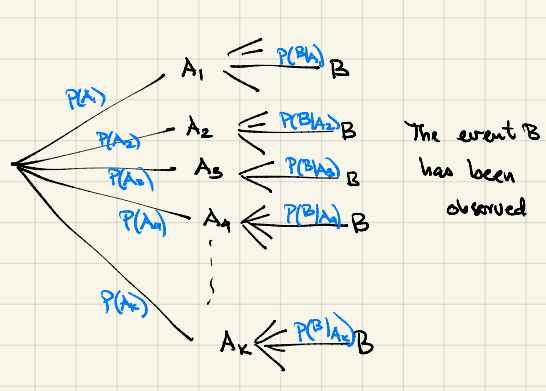 P(A₁)
A₁
P(B|A₁)
B
P(A₂)
A₂
P(B|A₂)
B
P(A₃)
A₃
P(B|A₃)
B
P(A₄)
A₄
P(B|A₄)
B
P(Aₖ)
Aₖ
P(B|Aₖ)
B
The event B
has been
observed